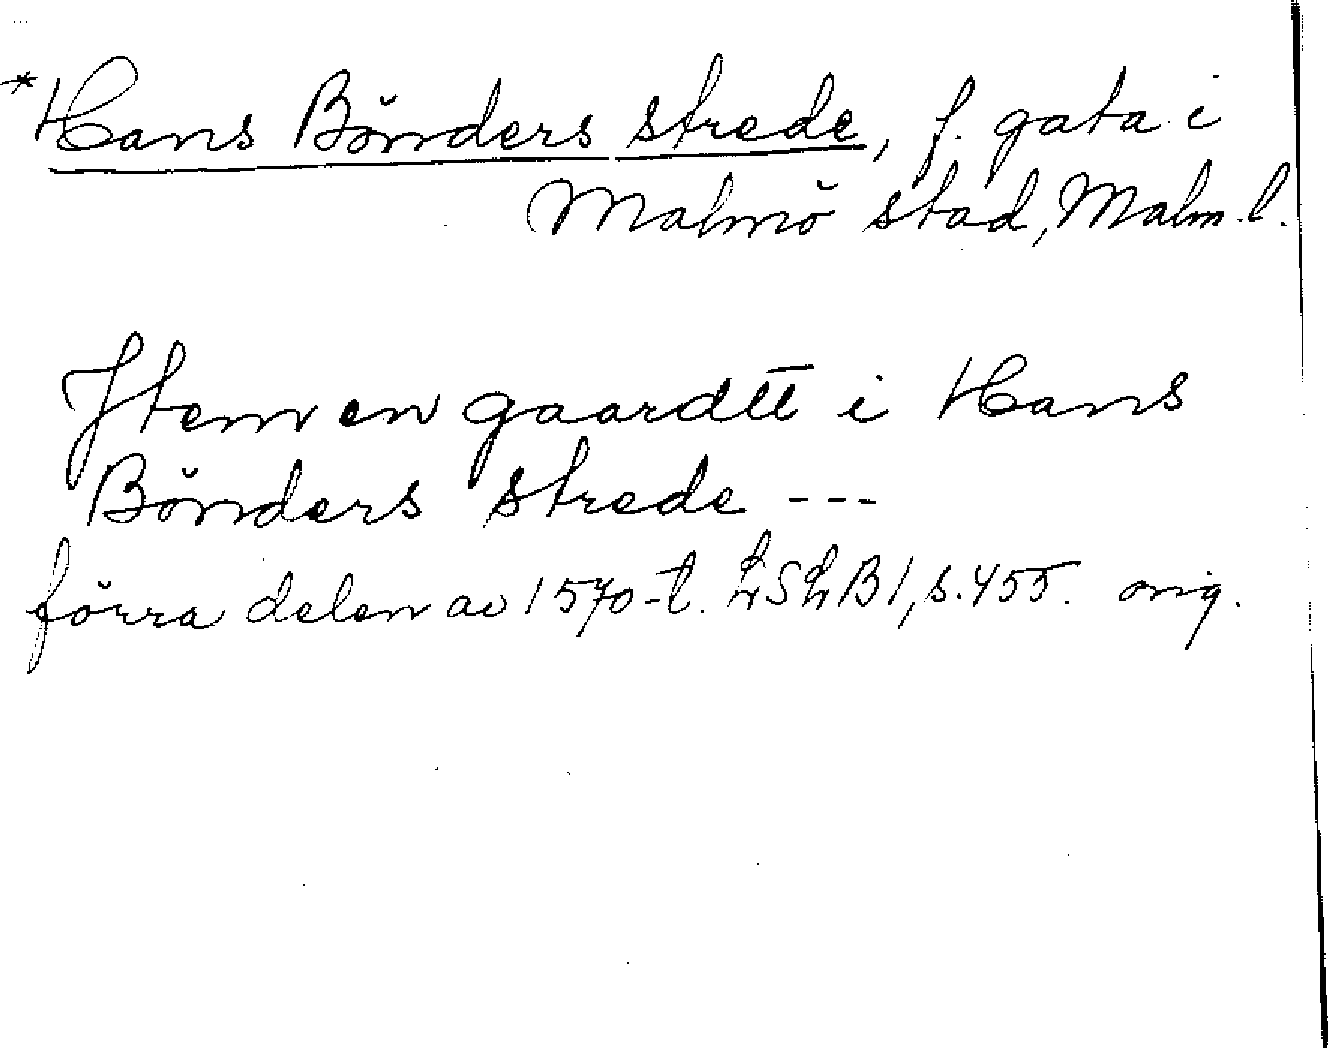 *Hans Bönders strede, f. gata i
Malmö stad, Malm. l.
Jtem en gaardtt i Hans
Bönders strede ---
förra delen av 1570-t. LSLB 1, s. 455. orig.